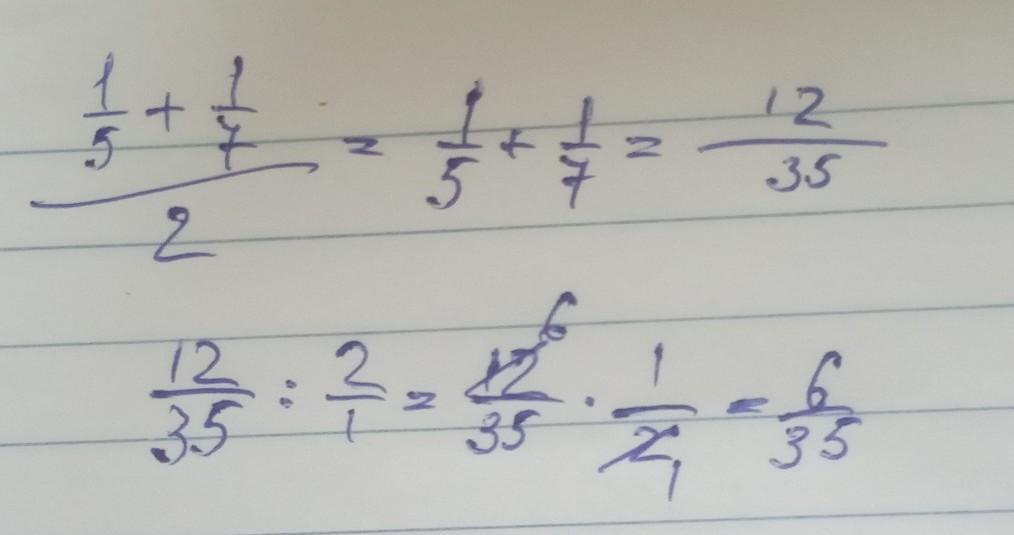 (1/5 + 1/7)/2 = 1/5 + 1/7 = 12/35
12/35 : 2/1 = 12⁶/35 · 1/2₁ = 6/35